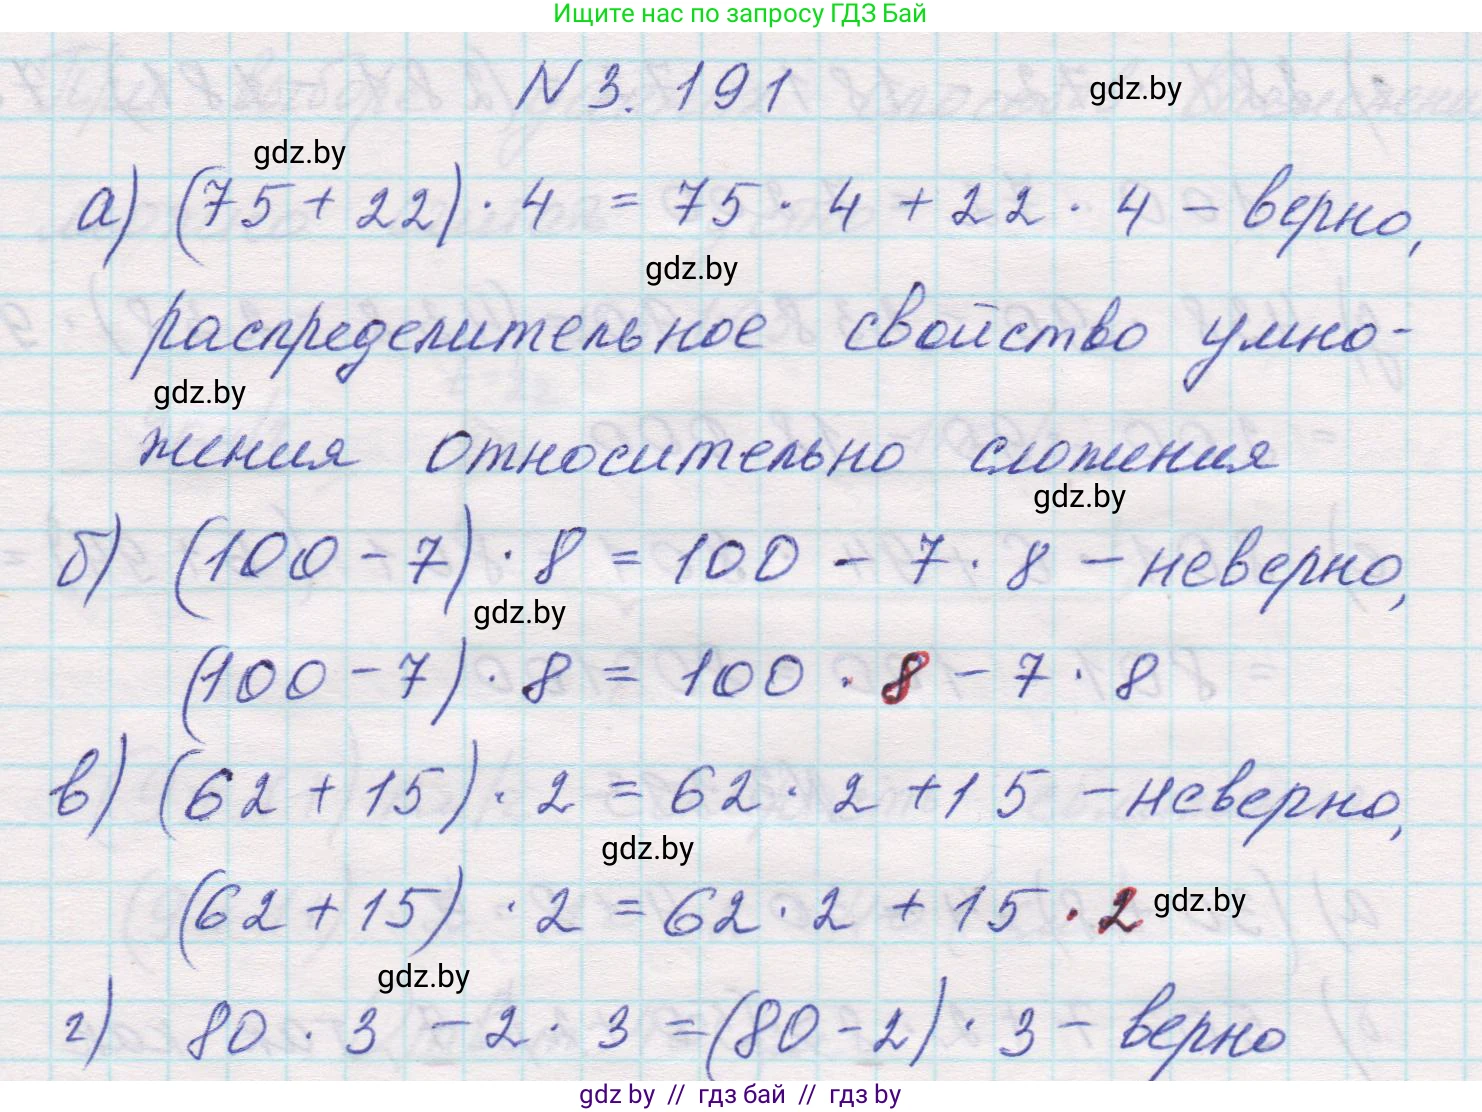 Ищите нас по запросу ГДЗ Бай
N 3. 191
gdz.by
gdz.by
а) (75 + 22) · 4 = 75 · 4 + 22 · 4 – верно,
gdz.by
распределительное свойство умно-
gdz.by
жения относительно сложения
gdz.by
б) (100 – 7) · 8 = 100 – 7 · 8 – неверно,
gdz.by
(100 – 7) · 8 = 100 · 8 – 7 · 8
в) (62 + 15) · 2 = 62 · 2 + 15 – неверно,
gdz.by
(62 + 15) · 2 = 62 · 2 + 15 · 2
gdz.by
gdz.by
г) 80 · 3 – 2 · 3 = (80 – 2) · 3 – верно
gdz.by // гдз бай // gdz.by